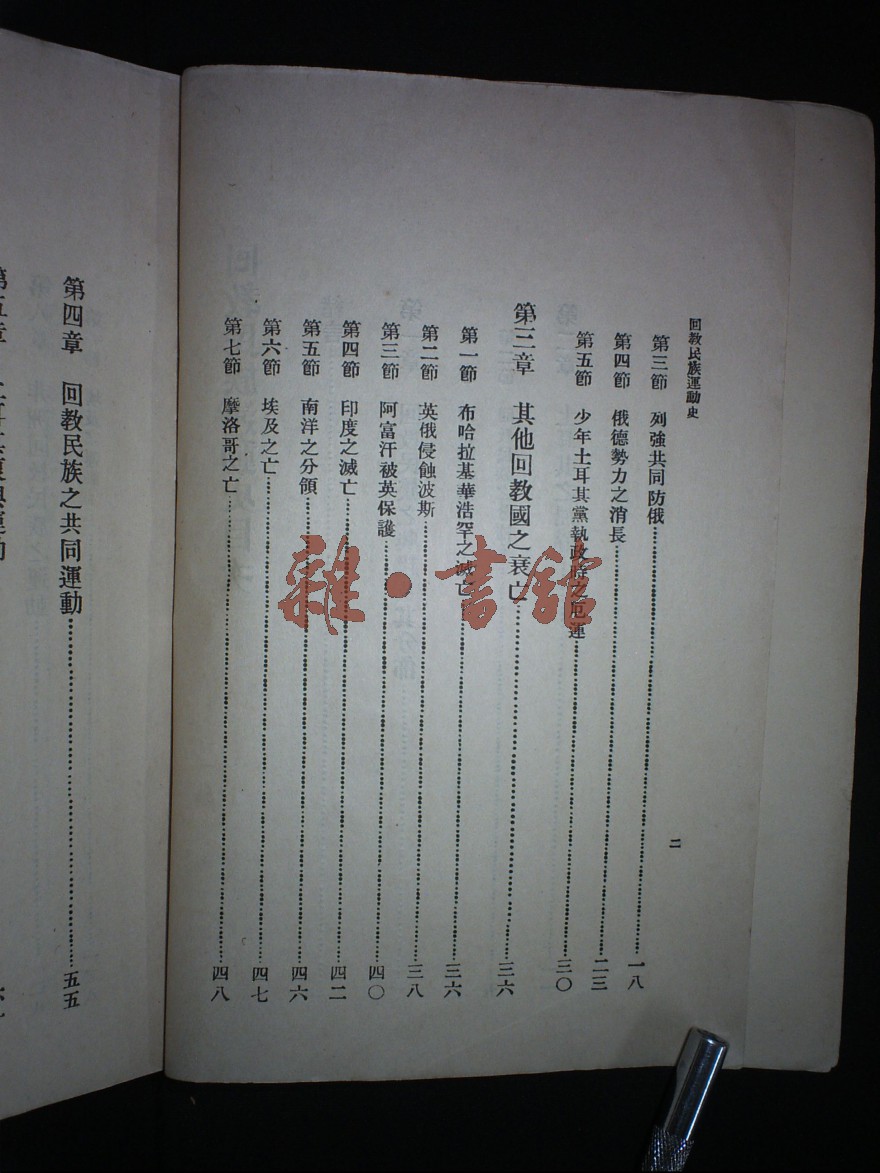 回教民族運動史
二
第三節　列強共同防俄……一八
第四節　俄德勢力之消長……二三
第五節　少年土耳其黨執政時之厄運……三〇
第三章　其他回教國之衰亡……三六
第一節　布哈拉基華浩罕之滅亡……三六
第二節　英俄侵蝕波斯……三八
第三節　阿富汗被英保護……四〇
第四節　印度之滅亡……四二
第五節　南洋之分領……四六
第六節　埃及之亡……四七
第七節　摩洛哥之亡……四八
第四章　回教民族之共同運動……五五
第五章
雜·書館